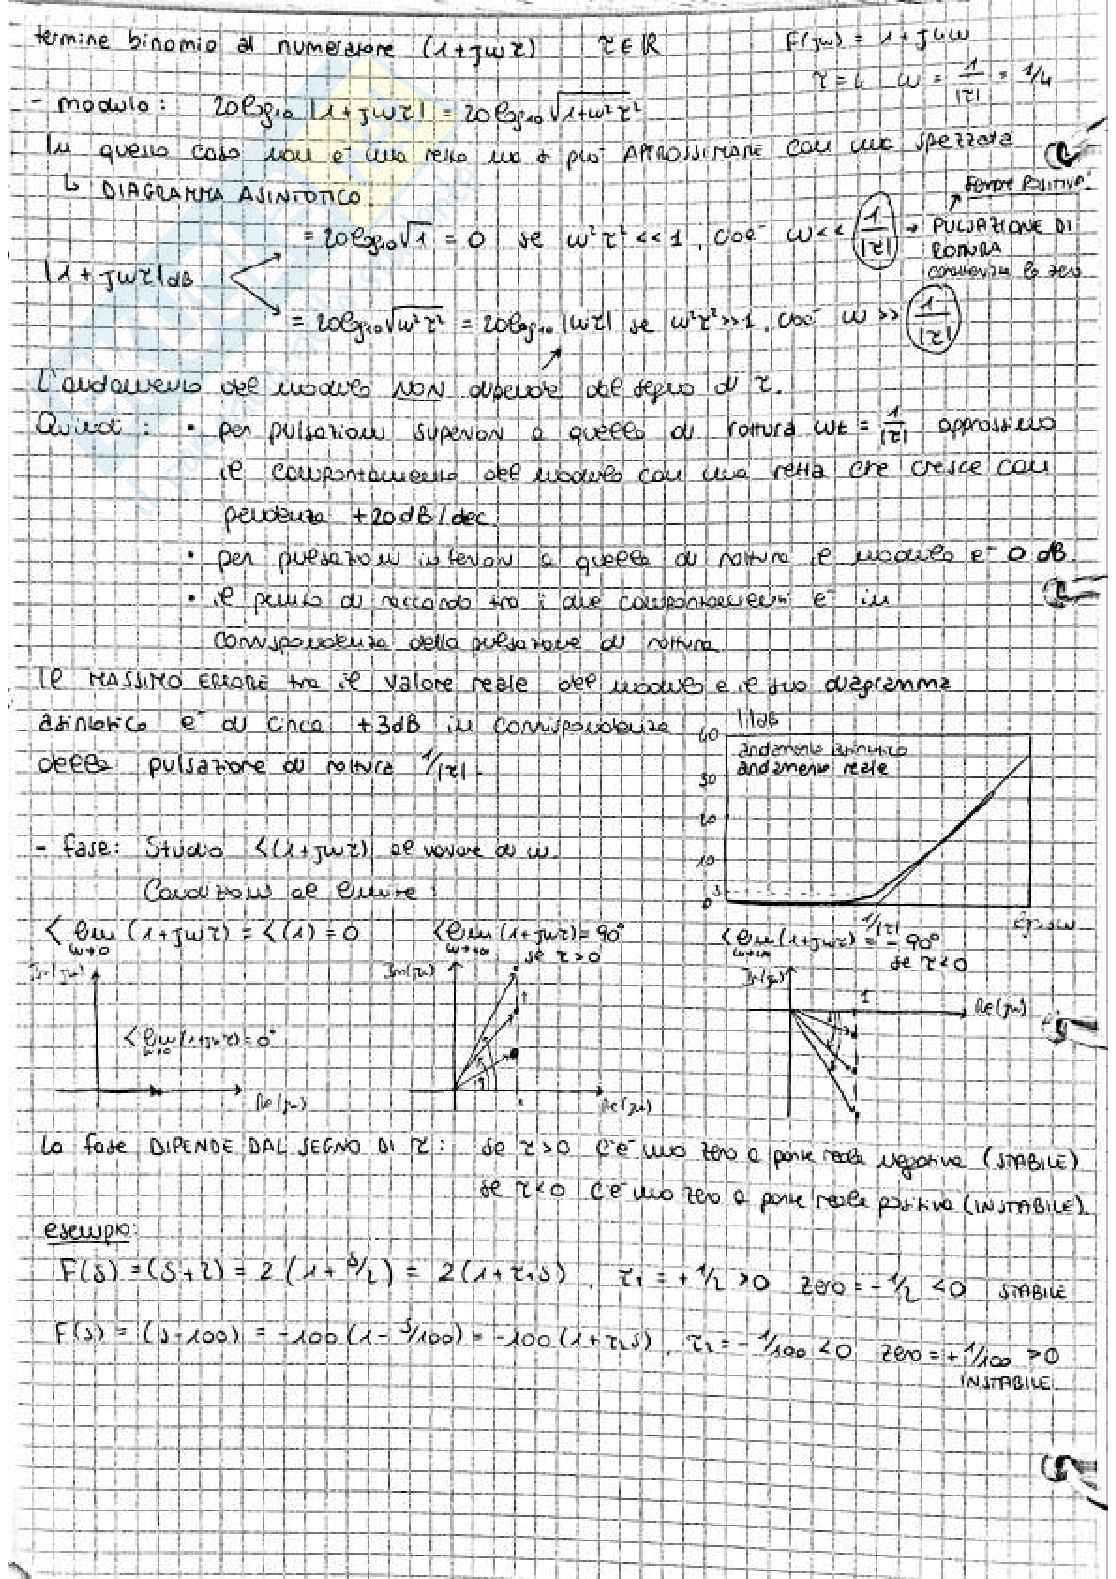 termine binomio al numeratore (1+jωτ) τ∈ℝ F(jω) = 1+j4ω
τ=4 ω = 1/|τ| = 1/4
- modulo: 20log₁₀ |1+jωτ| = 20log₁₀ √1+ω²τ²
In questo caso non è una retta ma si può APPROSSIMARE con una spezzata
↳ DIAGRAMMA ASINTOTICO
sempre positiva!
= 20log₁₀√1 = 0 se ω²τ² << 1, cioè ω << 1/|τ| → PULSAZIONE DI ROTTURA
|1+jωτ|dB
= 20log₁₀√ω²τ² = 20log₁₀ |ωτ| se ω²τ² >> 1, cioè ω >> 1/|τ|
L'andamento del modulo NON dipende dal segno di τ.
Quindi: • per pulsazioni superiori a quella di rottura ωt = 1/|τ| approssimo
il comportamento del modulo con una retta che cresce con
pendenza +20dB/dec.
• per pulsazioni inferiori a quella di rottura il modulo è 0 dB.
• il punto di raccordo tra i due comportamenti è in
corrispondenza della pulsazione di rottura
Il MASSIMO ERRORE tra il valore reale del modulo e il suo diagramma
asintotico è di circa +3dB in corrispondenza
della pulsazione di rottura 1/|τ|.
|·|dB
40
andamento asintotico
andamento reale
30
20
10
3
0
1/|τ|
- fase: Studio <(1+jωτ) al variare di ω.
Condizioni al limite:
< lim ω→0 (1+jωτ) = <(1) = 0 < lim ω→+∞ (1+jωτ) = 90° se τ>0 < lim ω→+∞ (1+jωτ) = -90° se τ<0
Im(jω) Im(jω) Im(jω)
1 Re(jω)
< lim ω→0 (1+jωτ) = 0°
Re(jω) 1 Re(jω)
La fase DIPENDE DAL SEGNO DI τ: se τ>0 c'è uno zero a parte reale negativa (STABILE)
se τ<0 c'è uno zero a parte reale positiva (INSTABILE).
esempio:
F(s) = (s+2) = 2(1+s/2) = 2(1+τ₁s), τ₁ = +1/2 >0 zero = -1/2 <0 STABILE
F(s) = (s-100) = -100(1-s/100) = -100(1+τ₂s), τ₂ = -1/100 <0 zero = +1/100 >0
INSTABILE